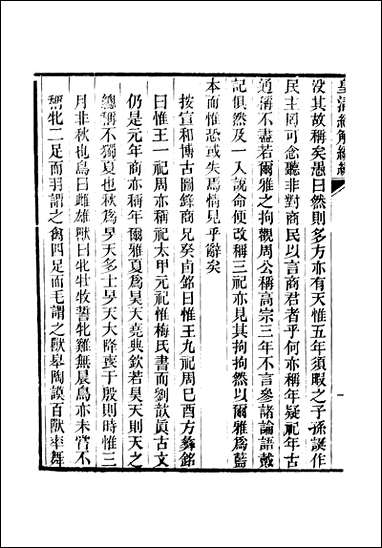 皇清經解續編
沒其故稱矣愚曰然則多方亦有天惟五年須暇之子孫誕作
民主罔可念聽非對商民以言商君者乎何亦稱年疑祀年古
通溝不盡若爾雅之拘觀周公稱高宗三年不言參諸論語戴
記俱然及一入說命便改稱三祀亦見其拘拘然以爾雅爲藍
本而惟恐或失焉情見乎辭矣
按宣和博古圖錄商兄癸卣銘曰惟王九祀周已酉方彝銘
曰惟王一祀周亦稱祀太甲元祀惟梅氏書而劉歆眞古文
仍是元年商亦稱年爾雅夏爲昊天堯典欽若昊天則天之
總稱不獨夏也秋爲旻天多士旻天大降喪于殷則時惟三
月非秋也鳥曰雌雄獸曰牝牡牧誓牝雞無晨鳥亦未嘗不
稱牝二足而羽謂之禽四足而毛謂之獸皋陶謨百獸率舞